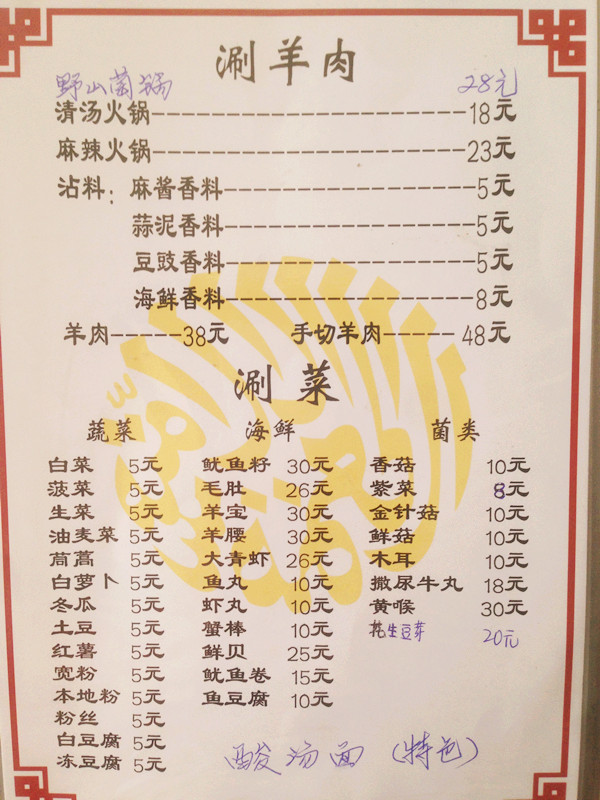 涮羊肉
野山菌锅 28元
清汤火锅--------------------18元
麻辣火锅--------------------23元
沾料：麻酱香料----------------5元
蒜泥香料----------------5元
豆豉香料----------------5元
海鲜香料----------------8元
羊肉-----38元 手切羊肉-----48元
涮菜
蔬菜 海鲜 菌类
白菜 5元 鱿鱼籽 30元 香菇 10元
菠菜 5元 毛肚 26元 紫菜 8元
生菜 5元 羊宝 30元 金针菇 10元
油麦菜 5元 羊腰 30元 鲜菇 10元
茼蒿 5元 大青虾 26元 木耳 10元
白萝卜 5元 鱼丸 10元 撒尿牛丸 18元
冬瓜 5元 虾丸 10元 黄喉 30元
土豆 5元 蟹棒 10元 花生豆芽 20元
红薯 5元 鲜贝 25元
宽粉 5元 鱿鱼卷 15元
本地粉 5元 鱼豆腐 10元
粉丝 5元
白豆腐 5元
冻豆腐 5元
酸汤面（特色）